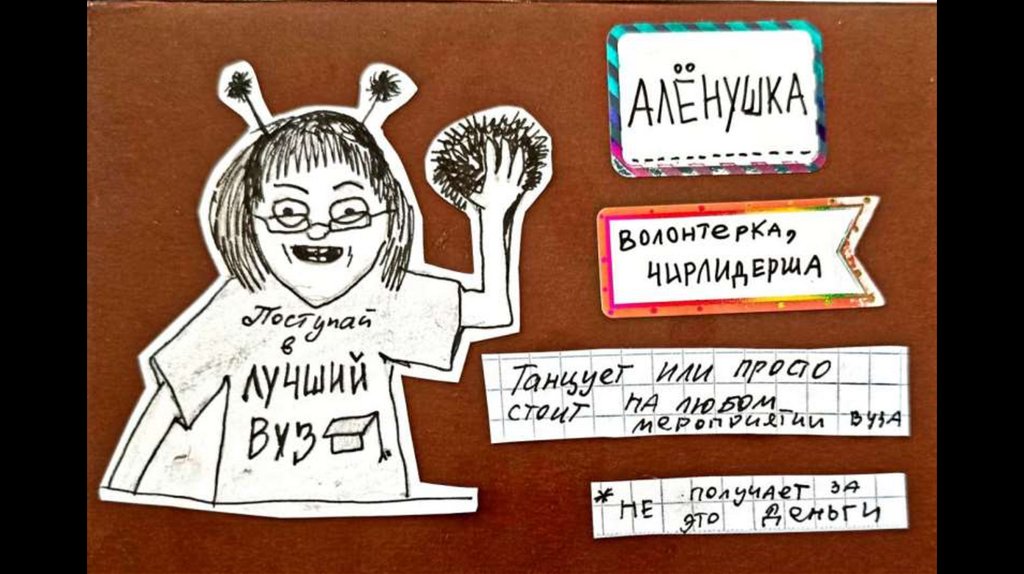 АЛЁНУШКА
ВОЛОНТЕРКА,
ЧИРЛИДЕРША
Поступай
в
ЛУЧШИЙ
ВУЗ
Танцует или просто
стоит на любом
мероприятии вуза
* не получает за
это деньги